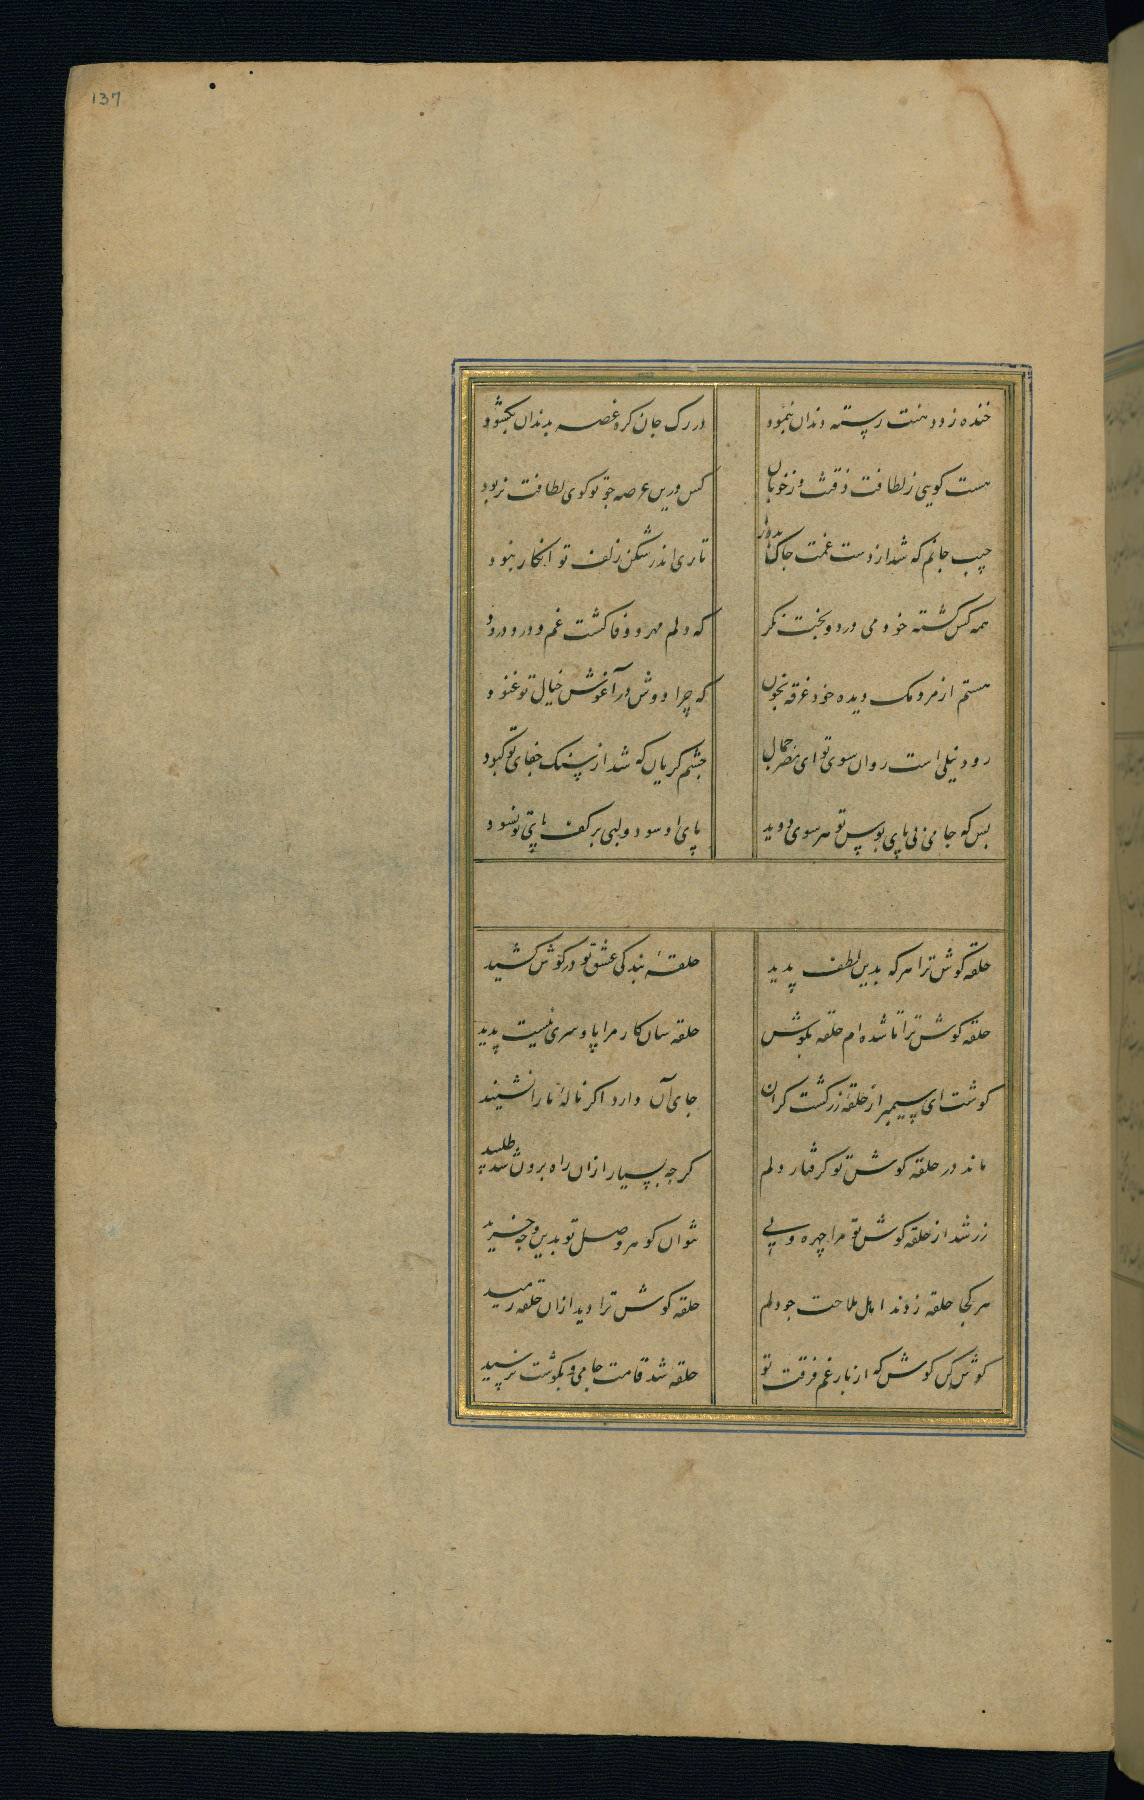 137
خنده زد و دهنت رسته دندان بنمود
در رک جان کره غصه بدندان بکشود
هست کویی ز لطافت ذقنت وز خوبان
کس درین عرصه جو تو کوی لطافت نربود
جیب جانم که شد از دست غمت جاک
تاری اندر شکن زلف تو انکار نبود
همه کس کشته خود می درود بخت نکر
که دلم مهر و وفا کشت غم و درد درود
هستم از مردمک دیده خود غرقه بخون
که چرا دوش در آغوش خیال تو غنود
رود نیلی است روان سوی تو ای مصر جمال
جشم کریان که شد از سنک جفای تو کبود
بس که جامی ز پی پای بوس تو هر سوی دوید
پای او سود و لبی بر کف پای تو نسود
حلقه کوش ترا هر که بدین لطف بدید
حلقهٔ بندکی عشق تو در کوش کشید
حلقه کوش ترا تا شده ام حلقه بکوش
حلقه سان کار مرا پا و سری نیست پدید
کوشت ای سیمبر از حلقهٔ زر کشت کران
جای آن دارد اکر نالهٔ ما را نشنید
ماند در حلقه کوش تو کرفتار دلم
کرجه بسیار ازان راه برون شد طلبید
زر شد از حلقه کوش تو مرا چهره ولی
نتوان کوهر وصل تو بدین وجه خرید
هر کجا حلقه زدند اهل ملاحت جو دلم
حلقه کوش ترا دید ازان حلقه رمید
کوش کن کوش که از بار غم فرقت تو
حلقه شد قامت جامی و بکوشت نرسید